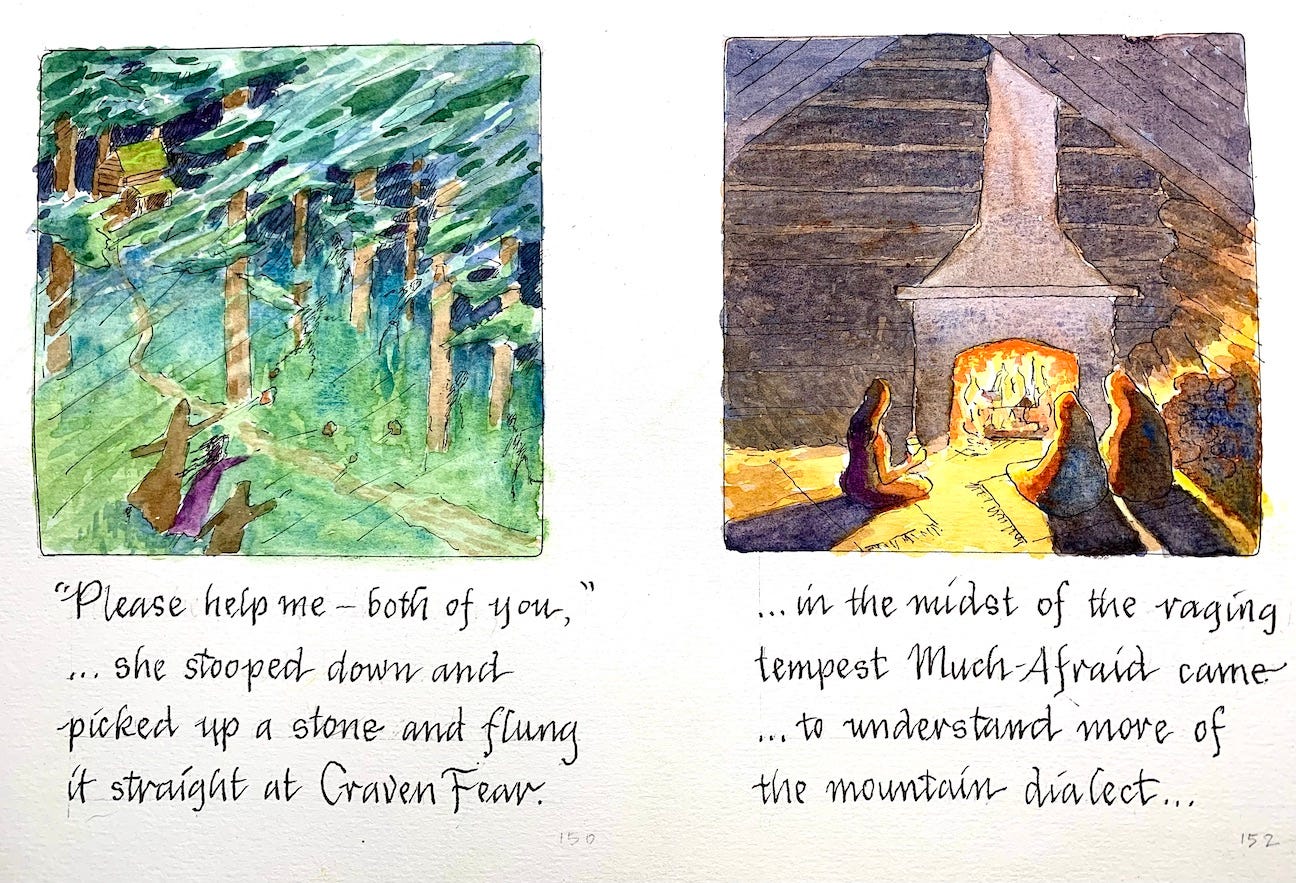 “Please help me – both of you,”
... she stooped down and
picked up a stone and flung
it straight at Craven Fear.
150
...in the midst of the raging
tempest Much-Afraid came
...to understand more of
the mountain dialect...
152